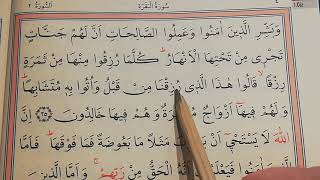 سورة البقرة
وَبَشِّرِ الَّذِينَ آمَنُوا وَعَمِلُوا الصَّالِحَاتِ أَنَّ لَهُمْ جَنَّاتٍ
تَجْرِي مِنْ تَحْتِهَا الْأَنْهَارُ كُلَّمَا رُزِقُوا مِنْهَا مِنْ ثَمَرَةٍ
رِزْقًا قَالُوا هٰذَا الَّذِي رُزِقْنَا مِنْ قَبْلُ وَأُتُوا بِهِ مُتَشَابِهًا
وَلَهُمْ فِيهَا أَزْوَاجٌ مُطَهَّرَةٌ وَهُمْ فِيهَا خَالِدُونَ ٢٥
اللّٰهَ لَا يَسْتَحْيِي مَثَلًا مَا بَعُوضَةً فَمَا فَوْقَهَا فَأَمَّا
آمَنُوا فَيَعْلَمُونَ أَنَّهُ الْحَقُّ مِنْ رَبِّهِمْ وَأَمَّا الَّذِينَ